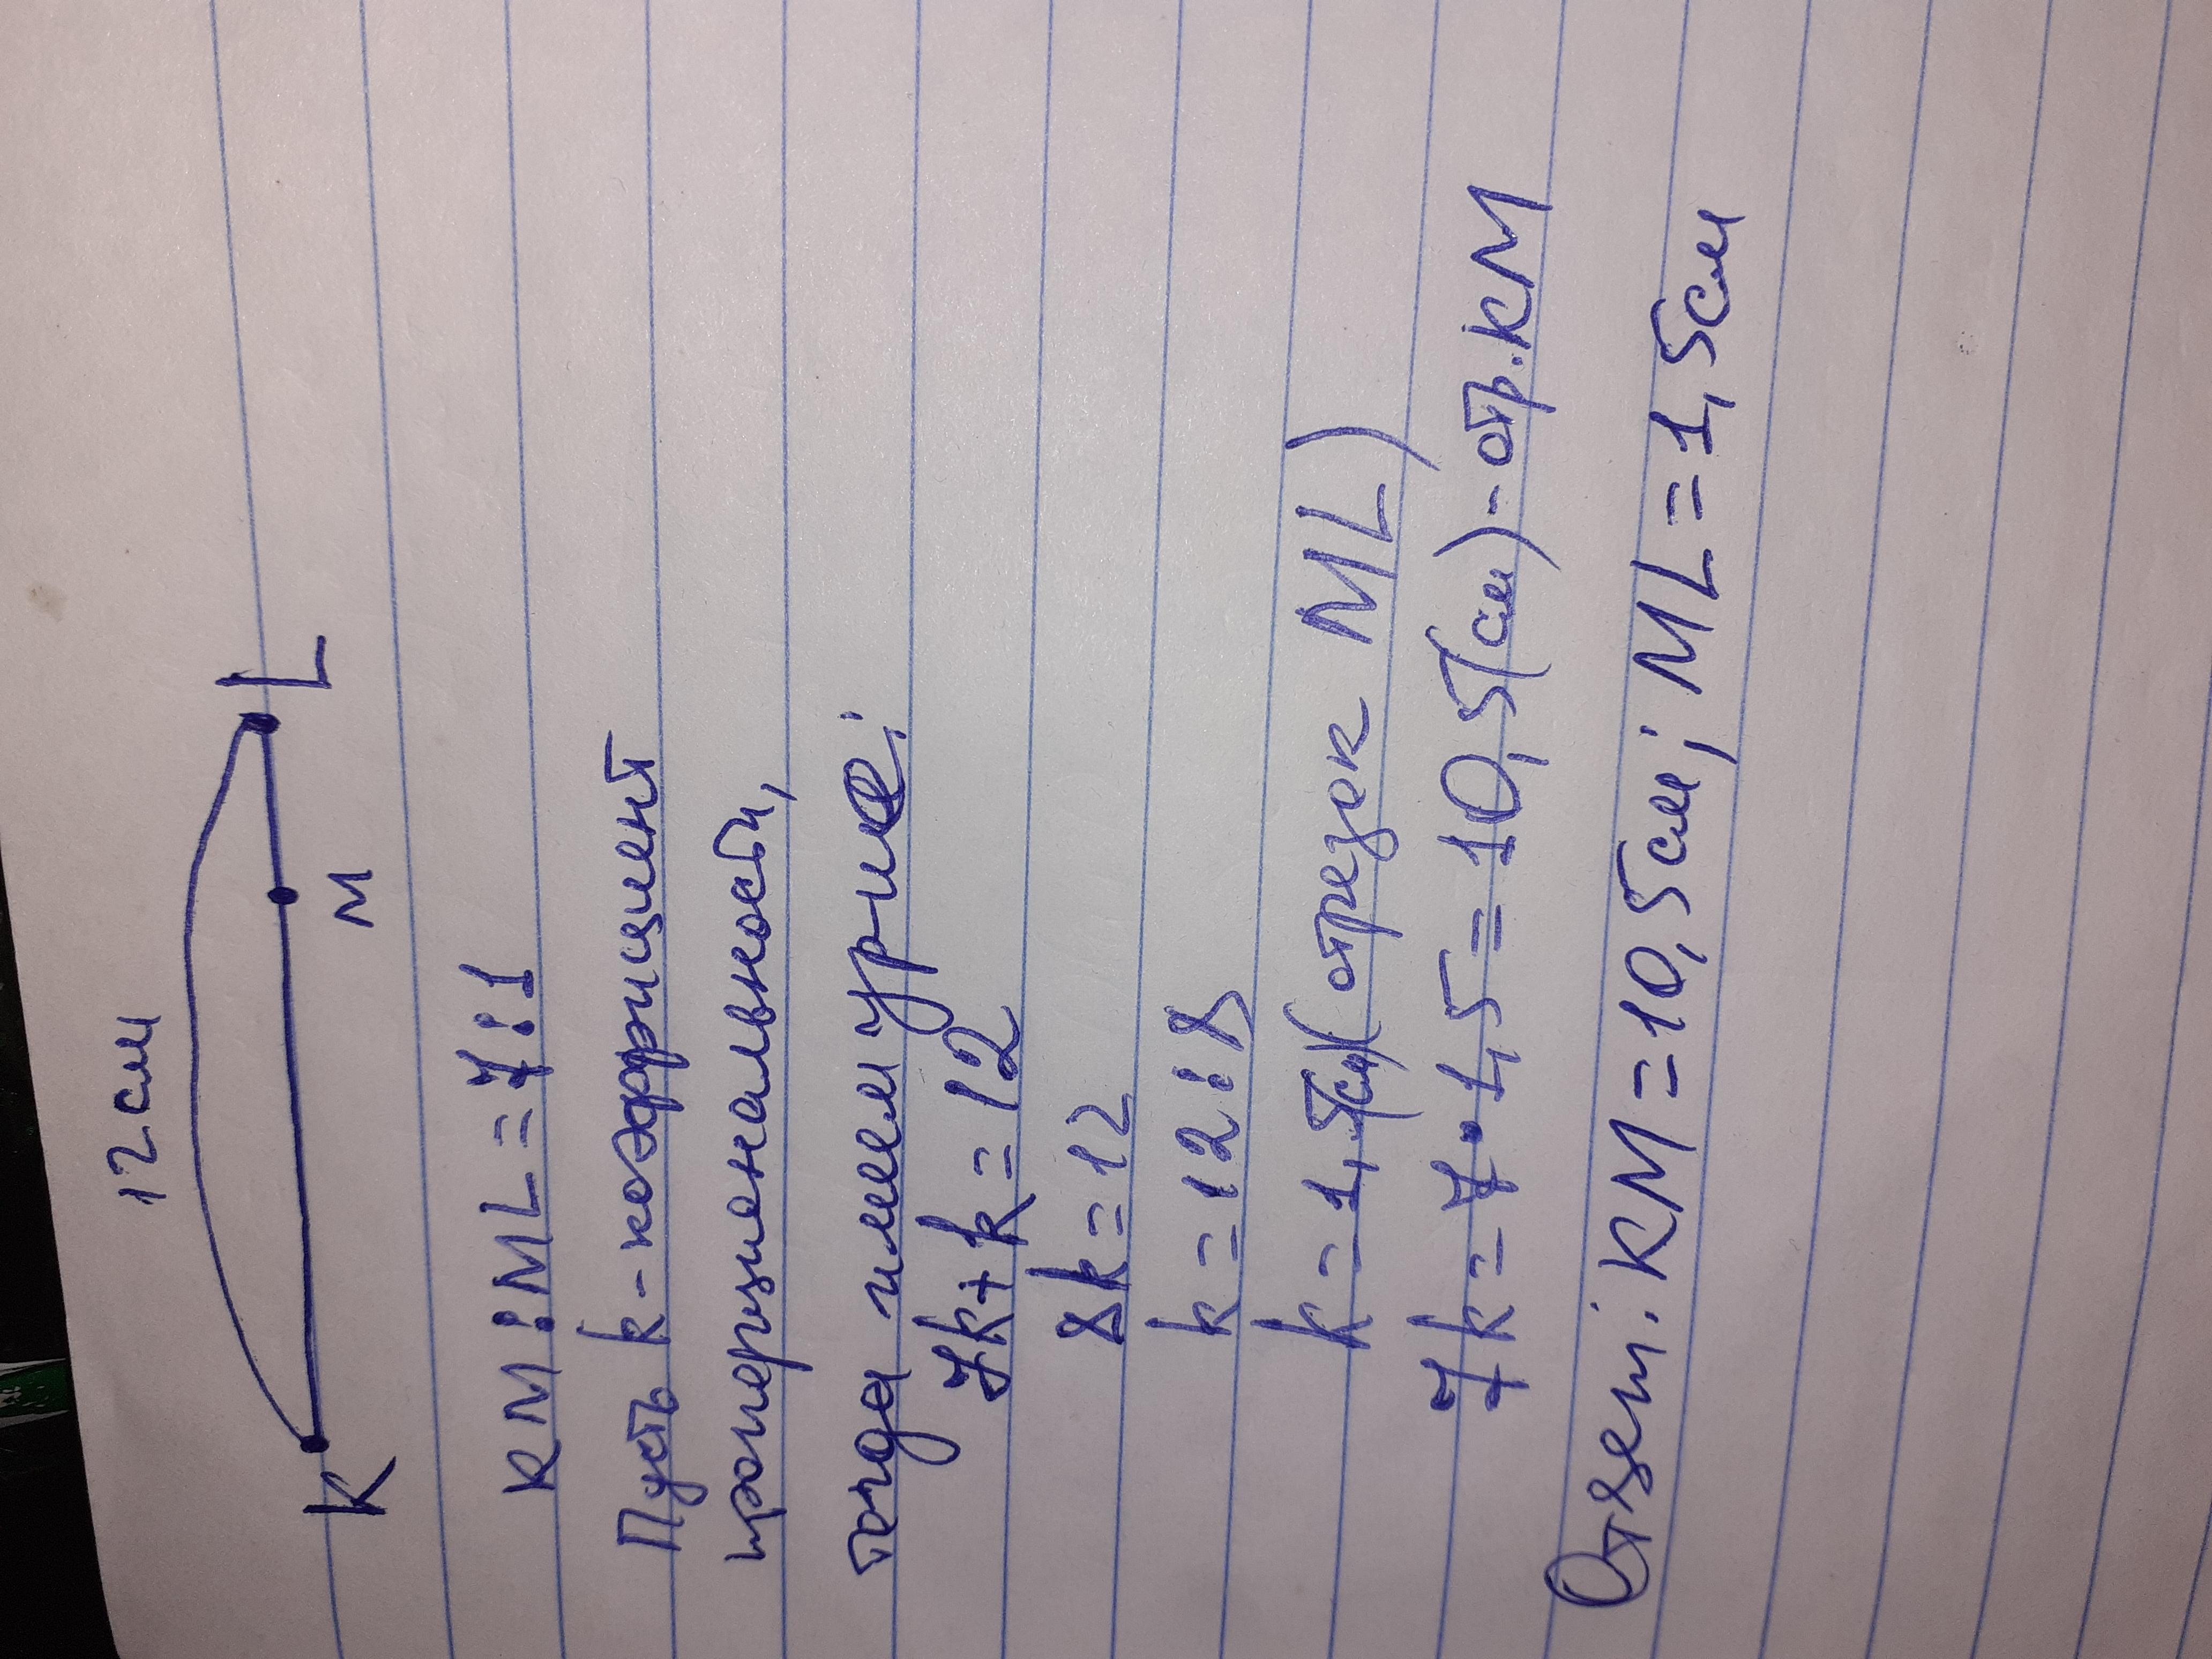 12 см
K M L
KM:ML=7:1
Пусть k-коэффициент
пропорциональности,
тогда имеем ур-ие:
7k+k=12
8k=12
k=12:8
k=1,5(см)(отрезок ML)
7k=7•1,5=10,5(см)-отр.KM
Ответ: KM=10,5см; ML=1,5см